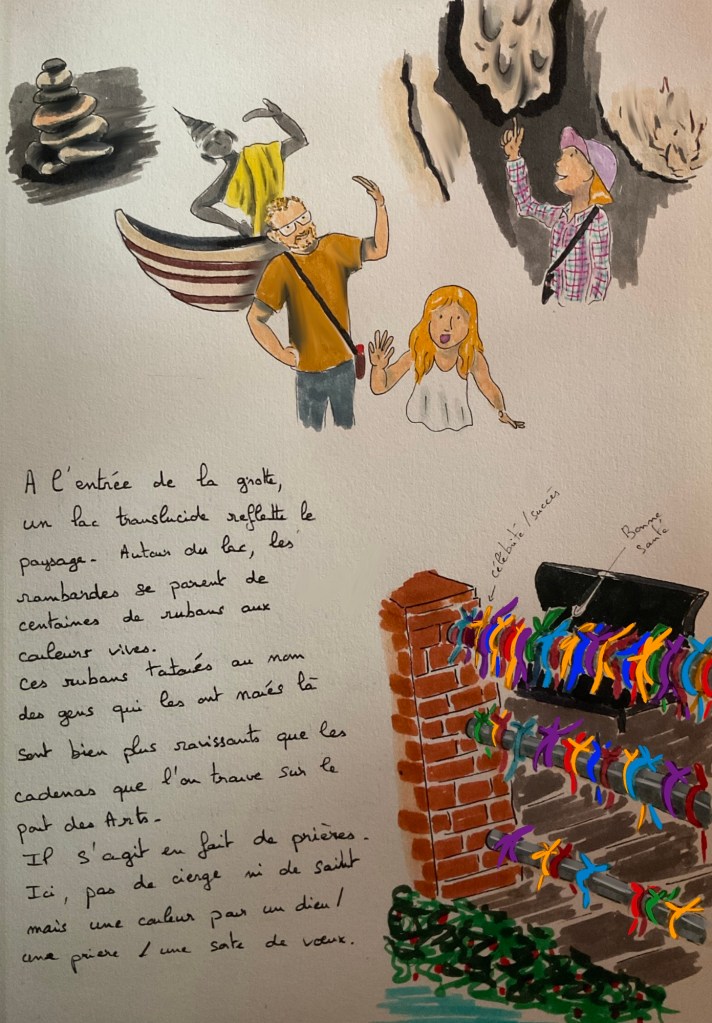 A l'entrée de la grotte,
un lac translucide reflette le
paysage. Autour du lac, les
rambardes se parent de
centaines de rubans aux
couleurs vives.
Ces rubans tatoués au nom
des gens qui les ont noués là
sont bien plus ravissants que les
cadenas que l'on trouve sur le
pont des Arts.
Il s'agit en fait de prières.
Ici, pas de cierge ni de saint
mais une couleur par un dieu /
une priere / une sorte de vœux.
célébrité / succès
Bonne
santé